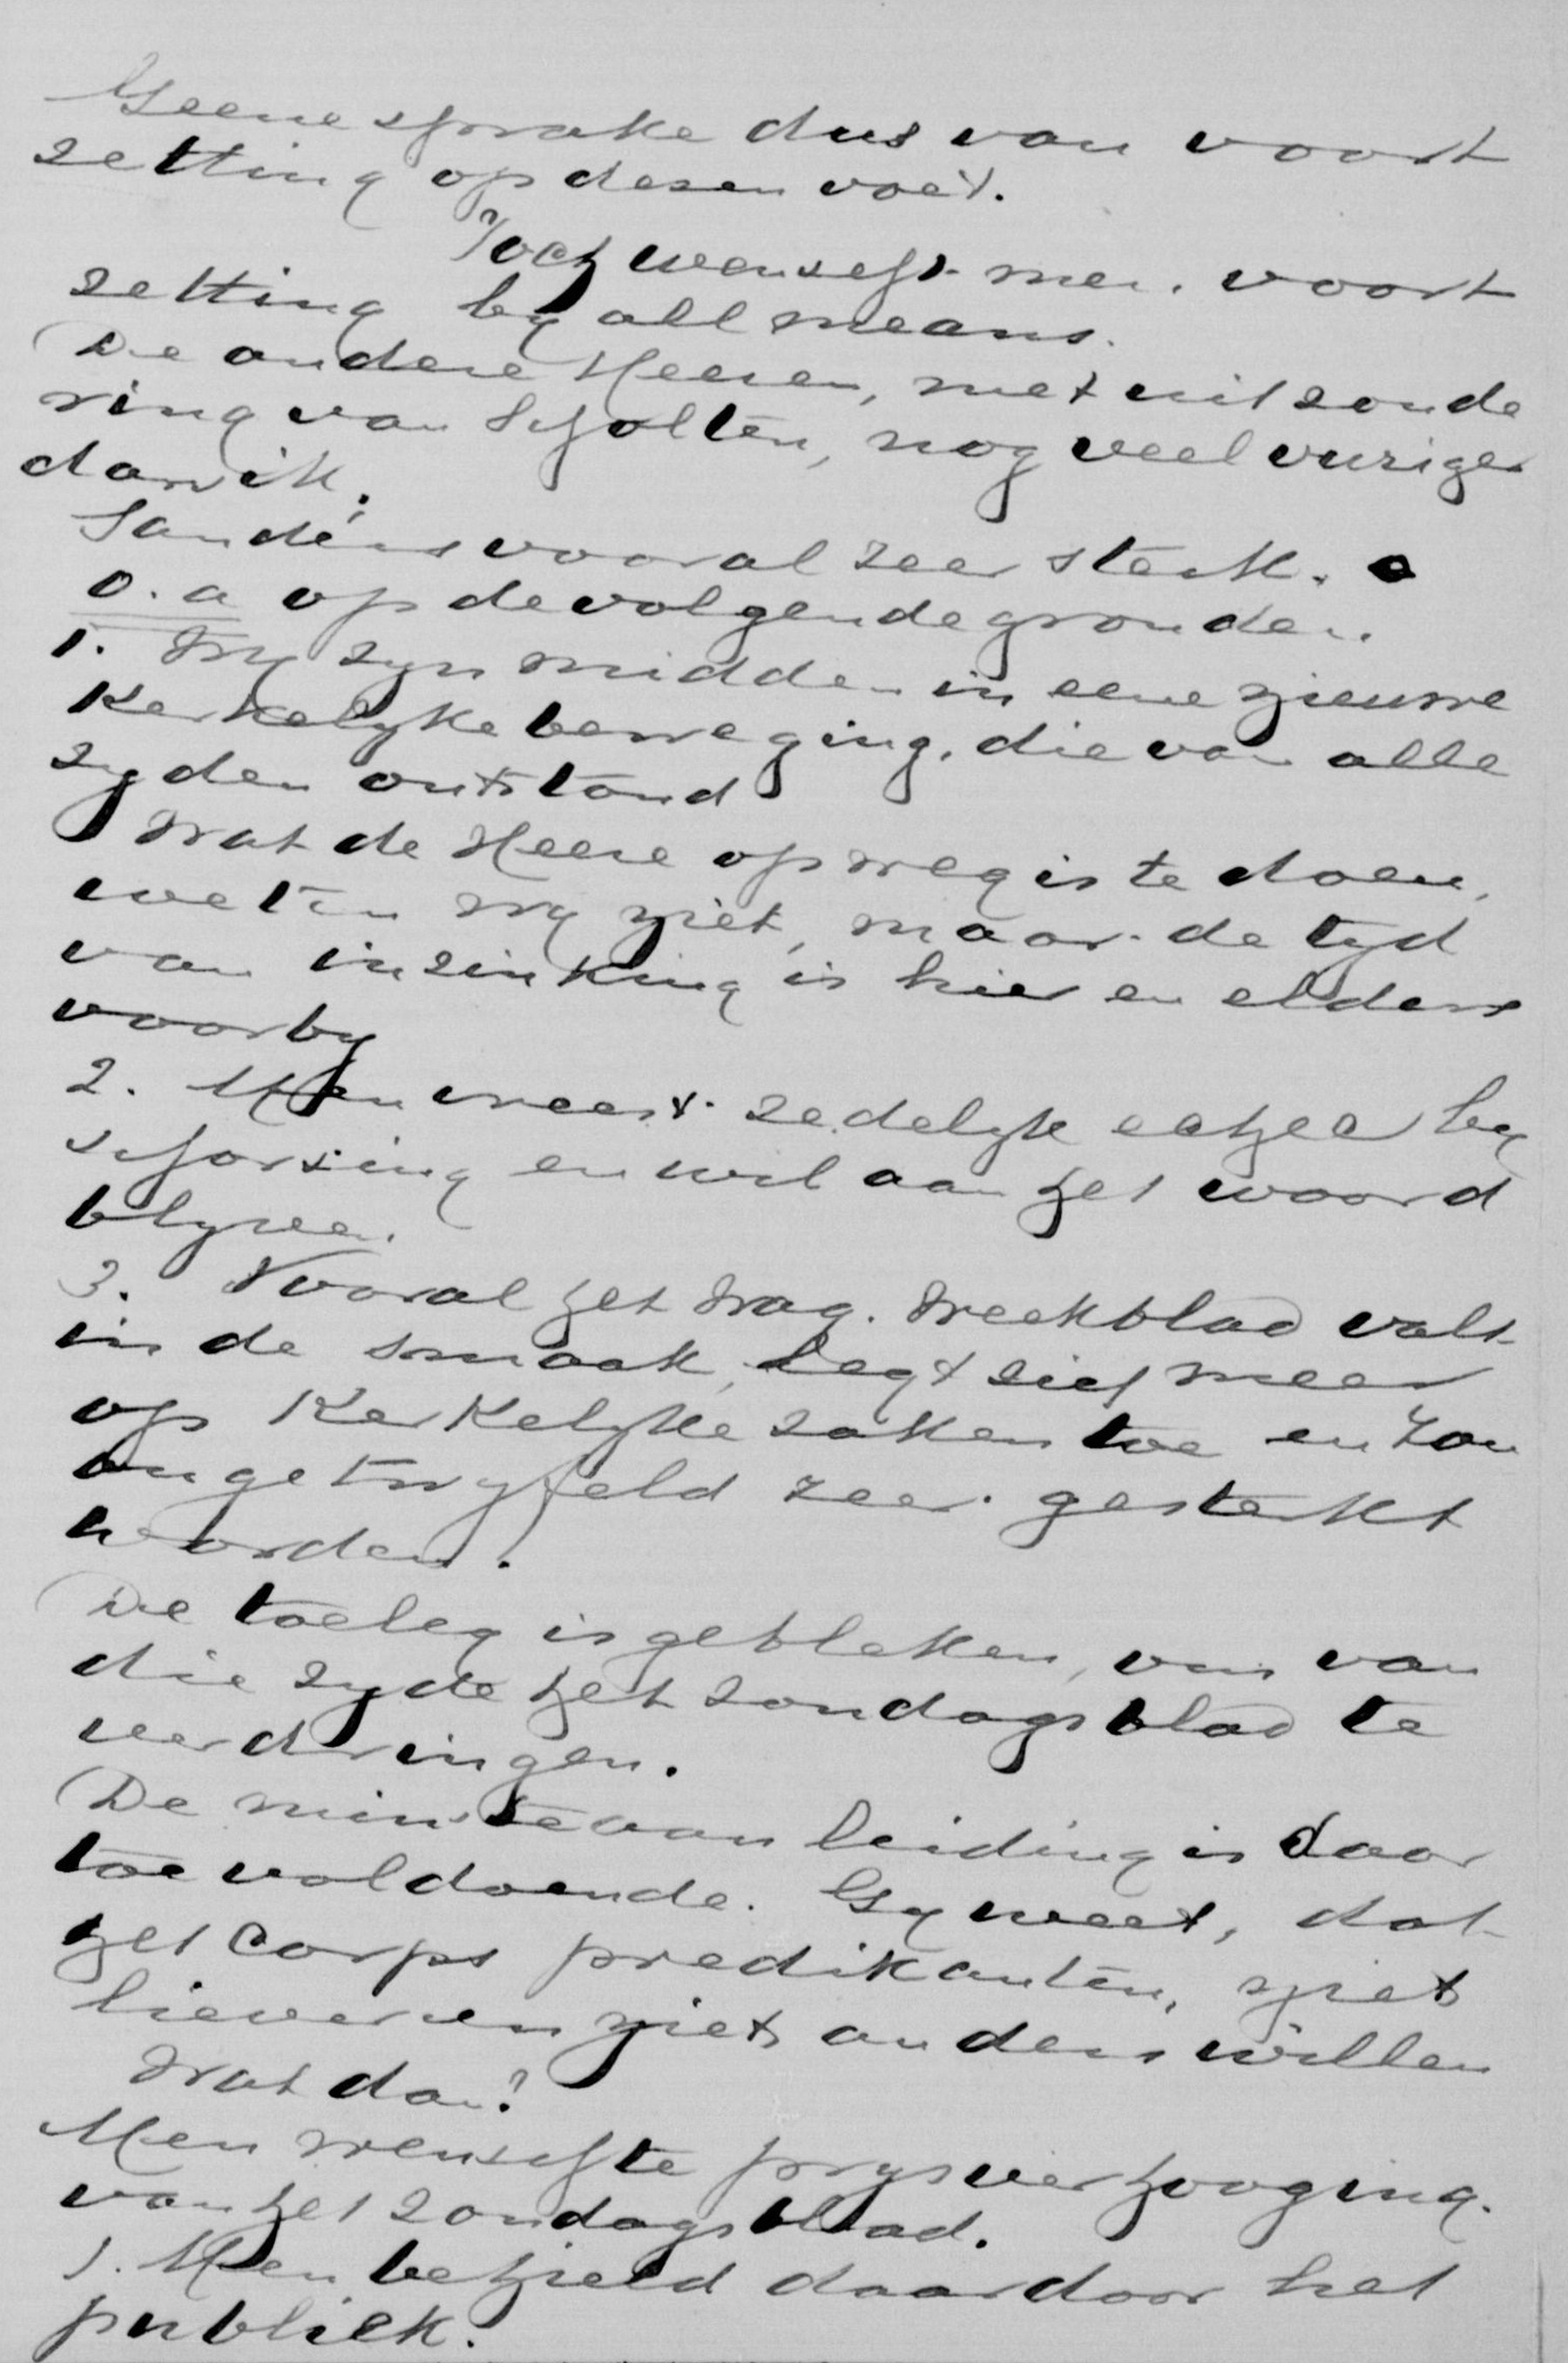 Geene sprake dus van voort
zetting op dezen voet.
Toch wenscht men voort
zetting by all means.
De andere Heeren, met uitzonde
ring van Scholten, nog veel vuriger
dan ik.
Sanders vooral zeer sterk.
o.a op de volgende gronden.
1. Wy zyn midden in eene nieuwe
Kerkelyke beweging, die van alle
zyden ontstond
Wat de Heere op weg is te doen,
weten wy niet, maar de tyd
van inzinking is hier en elders
voorby
2. Men vreest zedelyk echec by
schorsing en wil aan het woord
blyven.
3. Vooral het Wag. Weekblad valt
in de smaak, legt zich meer
op Kerkelyke zaken toe en zou
ongetwyfeld zeer gesterkt
worden.
De toeleg is gebleken, om van
die zyde het Zondagsblad te
verdringen.
De minste aanleiding is daar
toe voldoende. Gy weet, dat
het Corps predikanten, niet
liever en niet anders willen
Wat dan?
Men wenschte prysverhooging.
van het Zondagsblad.
1. Men behield daardoor het
publiek.